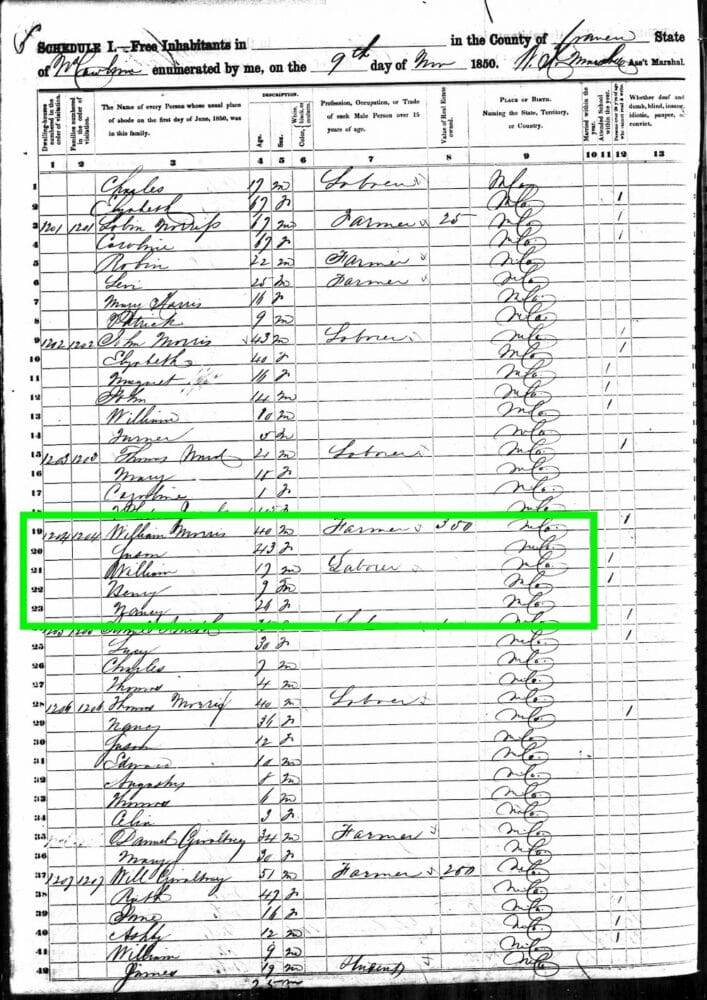 SCHEDULE I.—Free Inhabitants in in the County of Craven State
of enumerated by me, on the 9th day of Nov 1850. Ass't Marshal.
DESCRIPTION.
Dwelling-houses numbered in the order of visitation.
Families numbered in the order of visitation.
The Name of every Person whose usual place of abode on the first day of June, 1850, was in this family.
Age.
Sex.
Color, White, black, or mulatto.
Profession, Occupation, or Trade of each Male Person over 15 years of age.
Value of Real Estate owned.
PLACE OF BIRTH. Naming the State, Territory, or Country.
Married within the year.
Attended School within the year.
Persons over 20 y'rs of age who cannot read & write.
Whether deaf and dumb, blind, insane, idiotic, pauper, or convict.
1 2 3 4 5 6 7 8 9 10 11 12 13
1 Charles 17 m Laborer
2 Elizabeth 67 f 1
3 1201 1201 67 m Farmer 25 1
4 Caroline 67 f 1
5 Robin 22 m Farmer
6 Levi 25 m Farmer
7 Mary Harris 16 f
8 Patrick 9 m
9 1202 1202 John Morris 43 m Laborer 1
10 Elizabeth 40 f 1
11 16 f 1
12 John 14 m 1
13 William 10 m 1
14 Turner 5 m
15 1203 1203 Thomas Ward 21 m Laborer 1
16 Mary 15 f
17 Caroline 1 f
19 1204 1204 William Morris 40 m Farmer 350 1
20 Susan 43 f
21 William 17 m Laborer 1
22 Henry 9 m 1
23 Nancy 26 f
1
25 Lucy 30 f 1
26 Charles 7 m
27 Thomas 4 m
28 1206 1206 Thomas Morris 40 m Laborer
29 Nancy 36 f 1
30 Susan 12 f
31 Edward 10 m
32 Augustus 8 m
33 Thomas 6 m
34 3 f
35 Daniel Gwaltney 34 m Farmer
36 Mary 30 f
37 1207 1207 Will Gwaltney 51 m Farmer 200
38 Ruth 47 f
39 16 f 1
40 Ashly 12 m 1
41 William 9 m 1
42 James 19 m Student